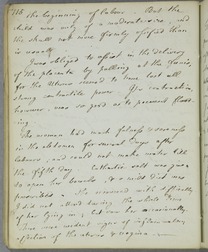 716 the beginning of labour. But the
child was only of a moderate size, and
the skull not more firmly ossified than
is usual.
I was obliged to assist in the delivery
of the placenta by pulling at the funis,
for the Uterus seemed to have lost all
strong contractile power. Its contraction,
however, was so good as to prevent flood-
ing.
The woman had much fulness & soreness
in the abdomen for several days after
labour, and could not make water till
the fifth Day. Cathartic salts were given
to open her bowels & a mild Diet was
She recovered with difficulty
I did not attend during the whole time
of her lying in, but saw her occasionally.
There were evident signs of inflammatory
affection of the uterus & vagina